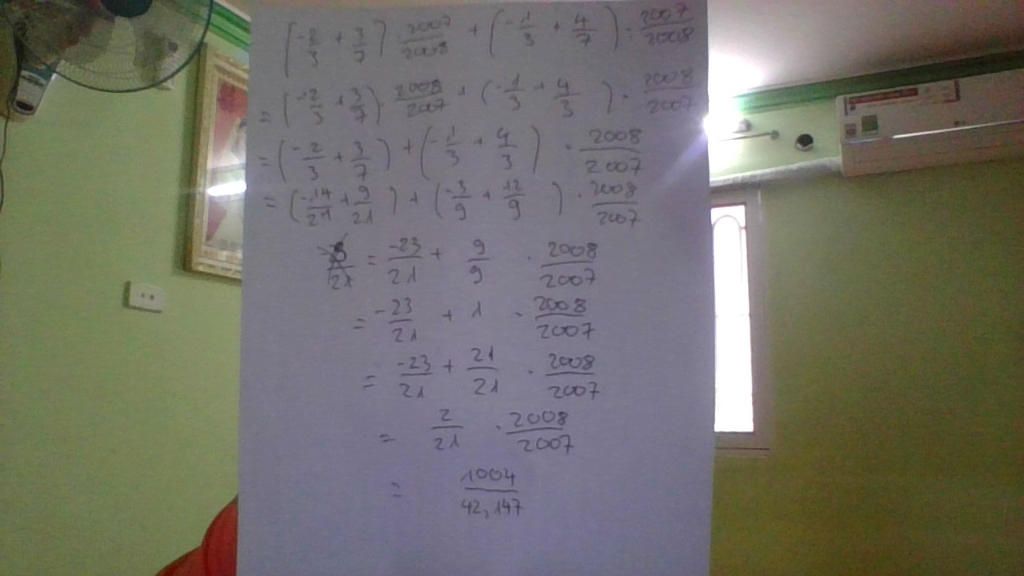 (-2/3 + 3/7) : 2007/2008 + (-1/3 + 4/7) : 2007/2008
= (-2/3 + 3/7) . 2008/2007 + (-1/3 + 4/3) . 2008/2007
= (-2/3 + 3/7) + (-1/3 + 4/3) . 2008/2007
= (-14/21 + 9/21) + (-3/9 + 12/9) . 2008/2007
= -23/21 + 9/9 . 2008/2007
= -23/21 + 1 . 2008/2007
= -23/21 + 21/21 . 2008/2007
= 2/21 . 2008/2007
= 1004/42,147